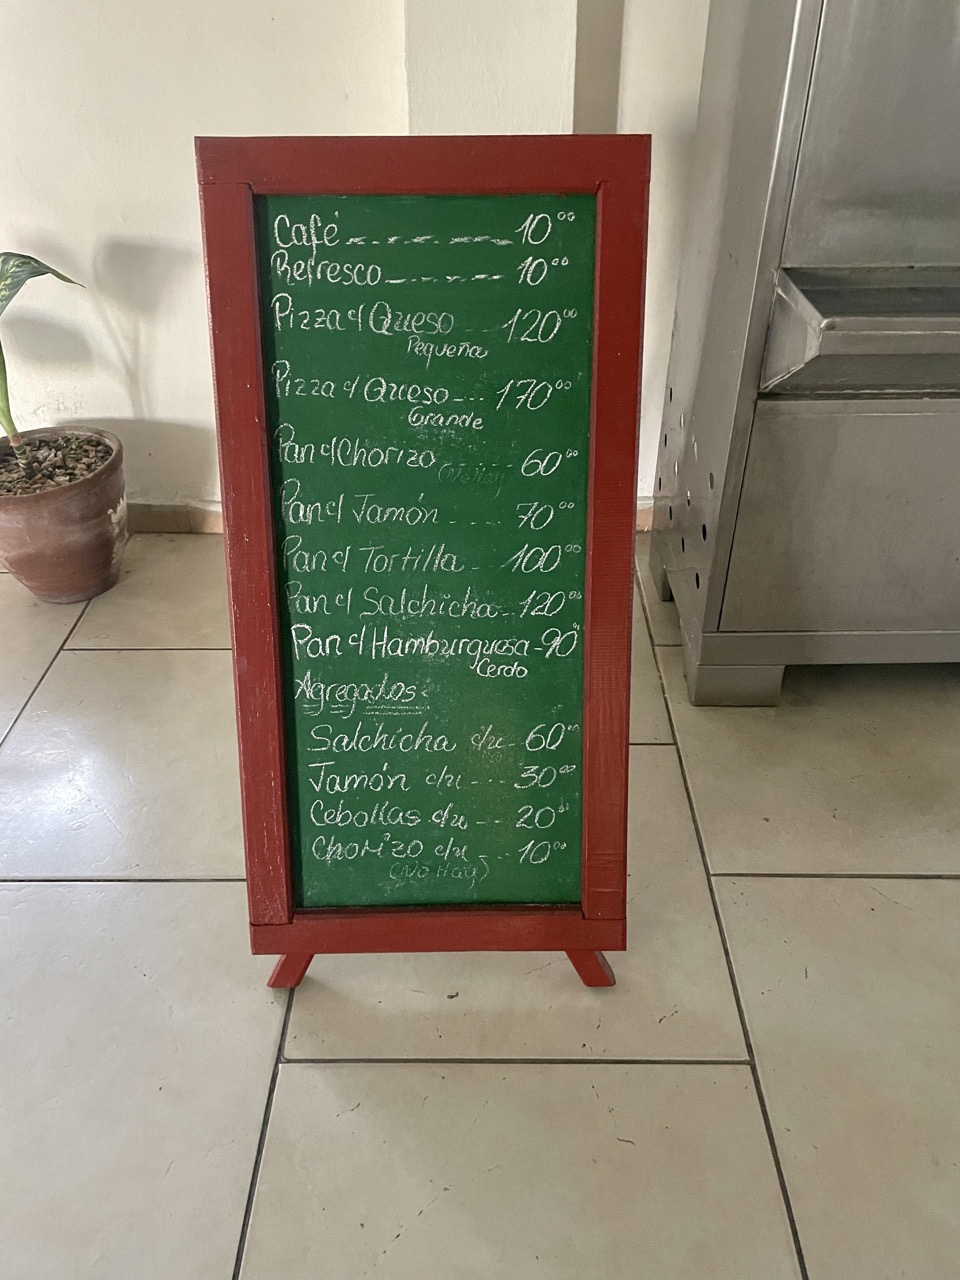 Café 10⁰⁰
Refresco 10⁰⁰
Pizza c/ Queso 120⁰⁰
Pequeña
Pizza c/ Queso 170⁰⁰
Grande
Pan c/ Chorizo (No Hay) 60⁰⁰
Pan c/ Jamón 70⁰⁰
Pan c/ Tortilla 100⁰⁰
Pan c/ Salchicha 120⁰⁰
Pan c/ Hamburguesa 90⁰⁰
Cerdo
Agregados:
Salchicha c/u 60⁰⁰
Jamón c/u 30⁰⁰
Cebollas c/u 20⁰⁰
Chorizo c/u 10⁰⁰
(No Hay)